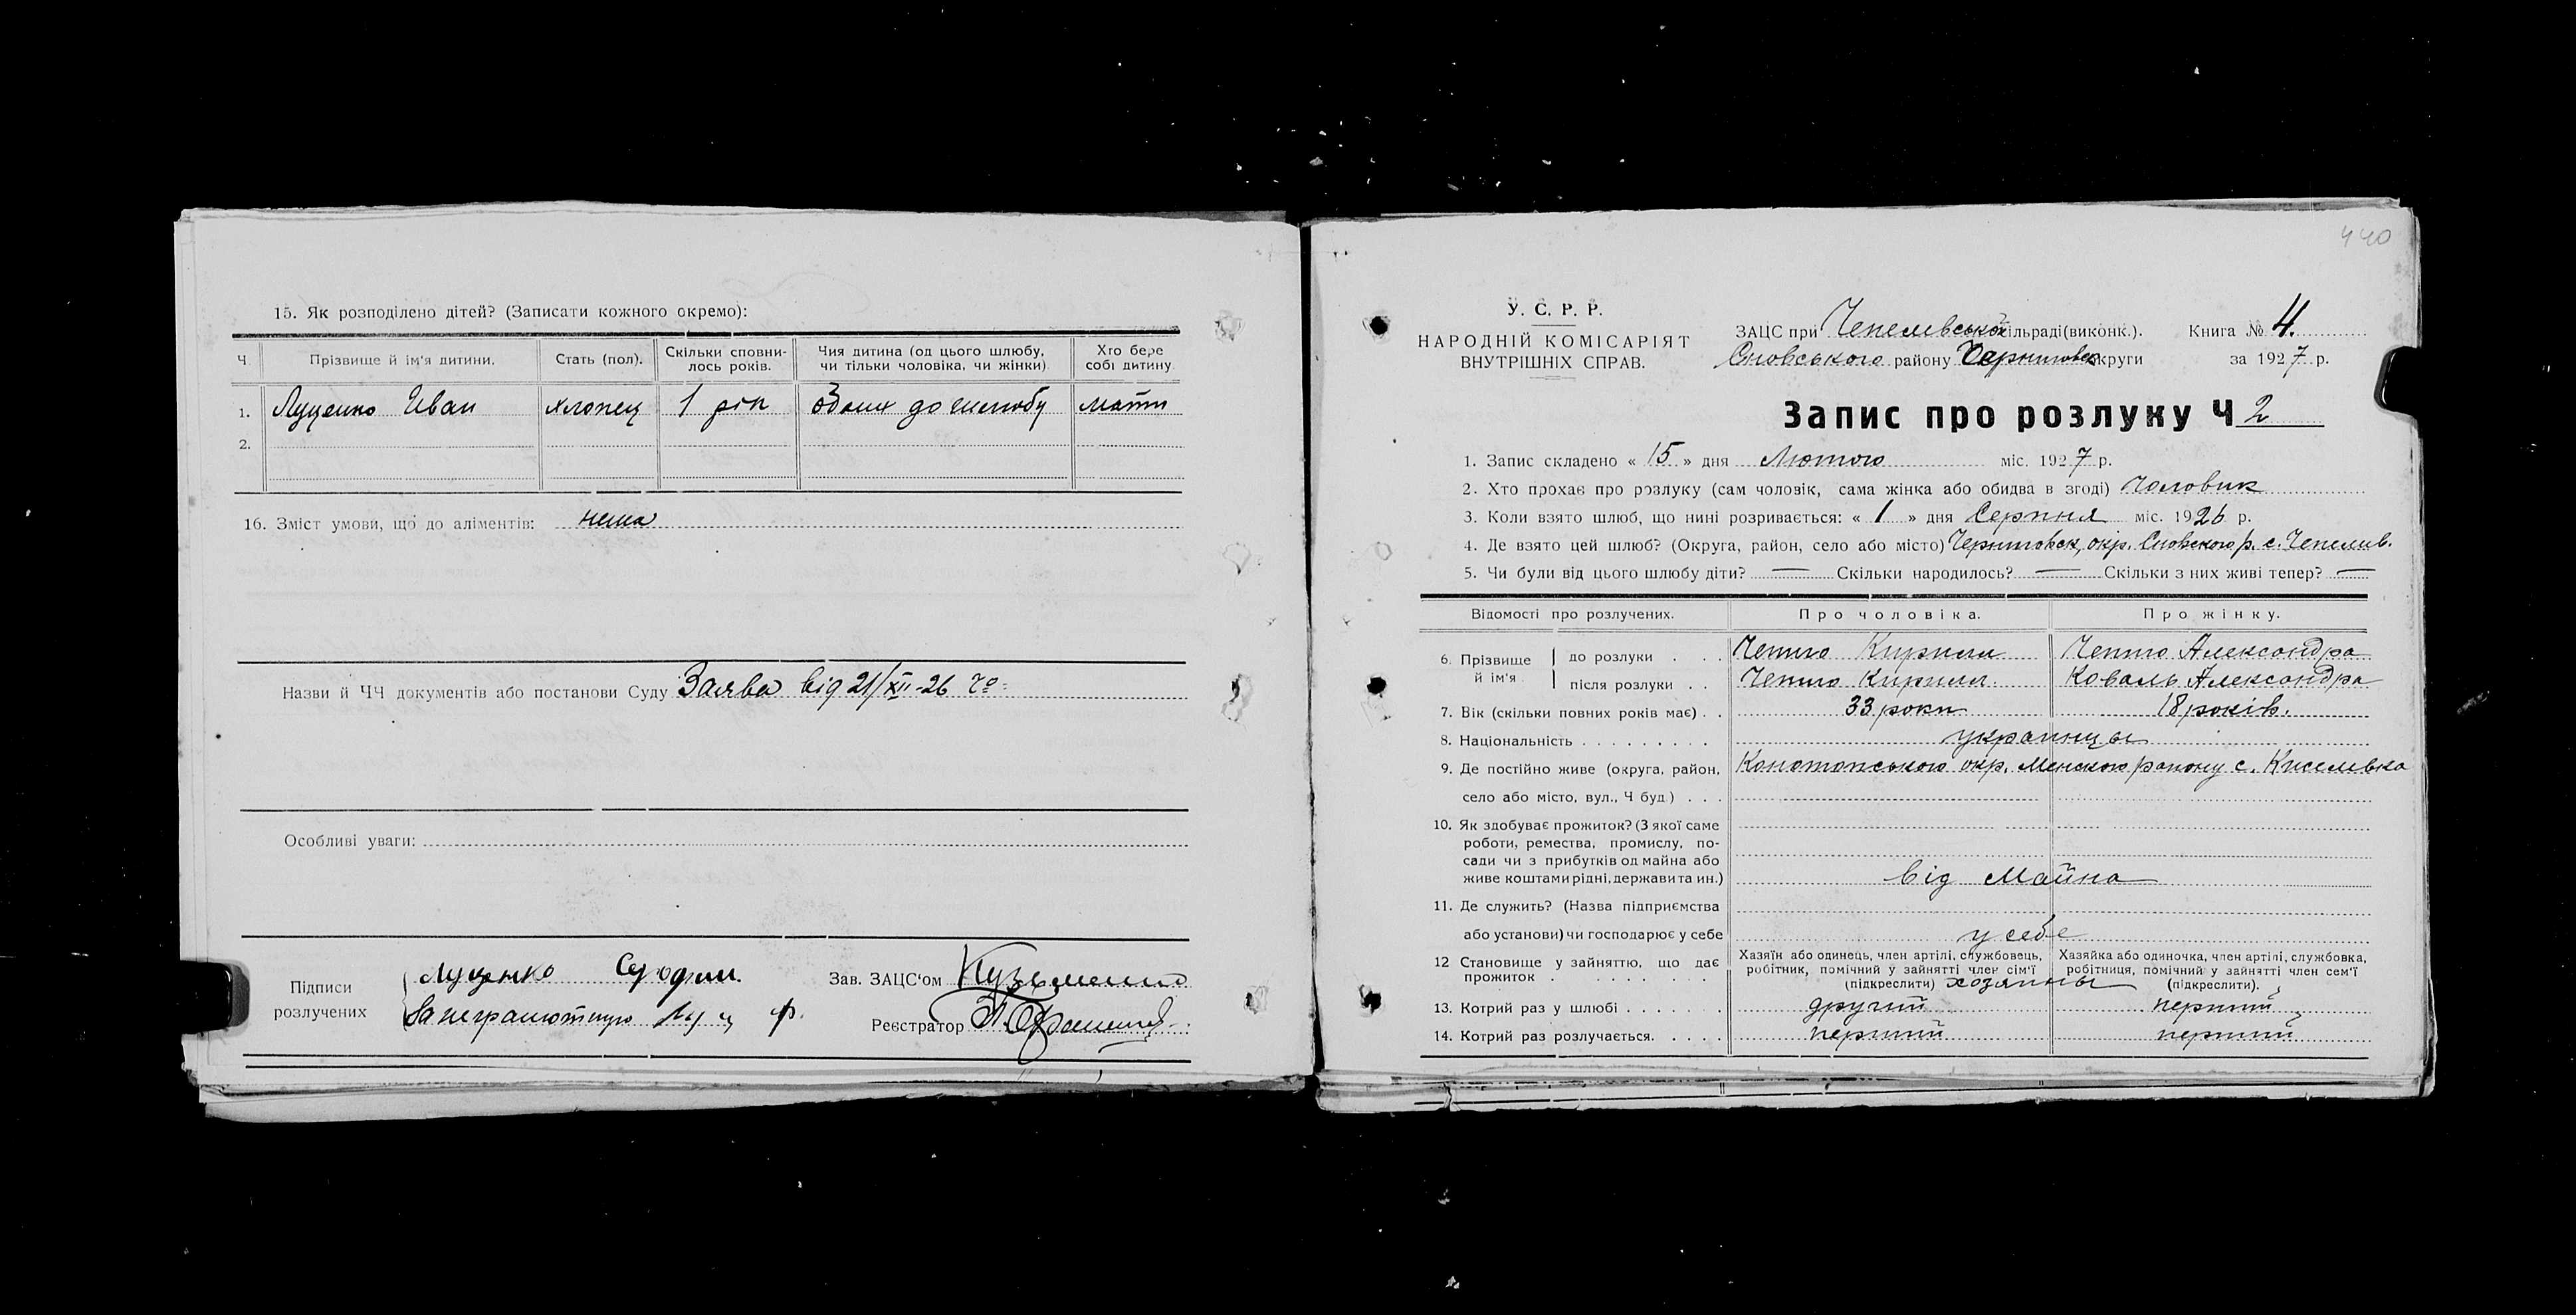 15. Як розподілено дітей? (Записати кожного окремо):
Ч. Прізвище й ім'я дитини. Стать (пол). Скільки сповнилось років. Чия дитина (од цього шлюбу, чи тільки чоловіка, чи жінки) Хто бере собі дитину
1. Луценко Иван хлопец 1 рік до шлюбу мати
2.
16. Зміст умови, що до аліментів: нема
Назви й ЧЧ документів або постанови Суду Заява від 21/XII-26 го
Особливі уваги:
Підписи розлучених
Луценко
За неграмотную
Зав. ЗАЦС'ом Кузьменко
Реєстратор
440
У. С. Р. Р.
НАРОДНІЙ КОМІСАРІЯТ
ВНУТРІШНІХ СПРАВ.
ЗАЦС при Чепелівській сільраді (виконк.). Книга № 4.
Сновського району Черниговск округи за 1927 р.
Запис про розлуку Ч 2
1. Запис складено « 15 » дня Лютого міс. 1927 р.
2. Хто прохає про розлуку (сам чоловік, сама жінка або обидва в згоді) Чоловик
3. Коли взято шлюб, що нині розривається: « 1 » дня Серпня міс. 1926 р.
4. Де взято цей шлюб? (Округа, район, село або місто) Черниговск. окр. Сновского р. с. Чепелив.
5. Чи були від цього шлюбу діти? — Скільки народилось? — Скільки з них живі тепер? —
Відомості про розлучених. Про чоловіка. Про жінку.
6. Прізвище й ім'я до розлуки . . . Кирилл Александра
після розлуки . . Кирилл. Коваль Александра
7. Вік (скільки повних років має) . . 33 роки 18 років.
8. Національність . . . . . . . . . українцы
9. Де постійно живе (округа, район, Конотопського окр. Менского району с. Киселевка
село або місто, вул., Ч буд.) . . .
10. Як здобуває прожиток? (З якої саме
роботи, ремества, промислу, по-
сади чи з прибутків од майна або
живе коштами рідні, держави та ин.) Від майна
11. Де служить? (Назва підприємства
або установи) чи господарює у себе у себе
12 Становище у зайняттю, що дає прожиток . . . . . . . Хазяїн або одинець, член артілі, службовець, робітник, помічний у зайнятті член сім'ї (підкреслити) хозяины Хазяйка або одиночка, член артілі, службовка, робітниця, помічний у зайнятті член сем'ї (підкреслити).
13. Котрий раз у шлюбі . . . . . . . другий перший
14. Котрий раз розлучається. . . . . перший перший